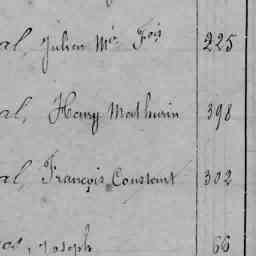 al, Julien Mie Fois 225
al, Henry Mathurin 398
al, François Constant 302
Joseph 66